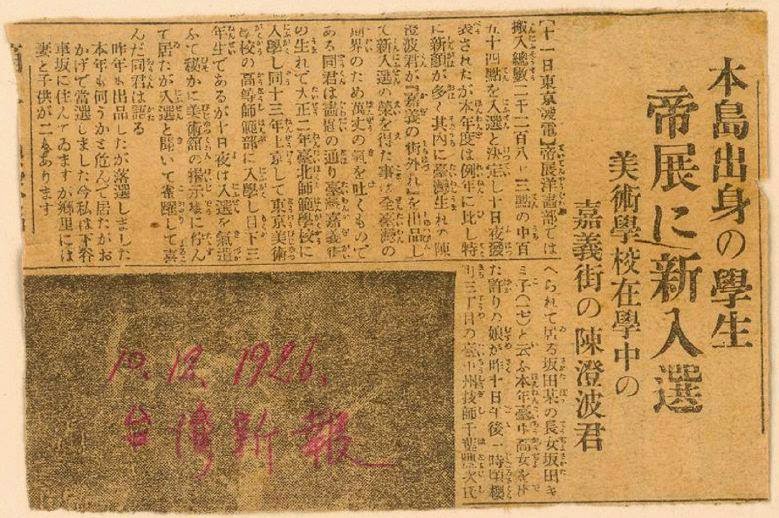 本島出身の學生
帝展に新入選
美術學校在學中の
嘉義街の陳澄波君
【十一日東京發電】帝展洋畫部では
搬入總數二千二百八十三點の中百
五十四點を入選と決定し十日夜發
表されたが本年度は例年に比し特
に新顏が多く其内に臺灣生れの陳
澄波君が『嘉義の街外れ』を出品し
て新入選の榮を得た事は全臺灣の
畫界のため萬丈の氣を吐くもので
ある同君は畫題の通り臺灣嘉義街
の生れで大正二年臺北師範學校に
入學し同十三年上京して東京美術
學校の高等師範部に入學し目下三
年生であるが十日夜は入選を氣遣
ふて秘かに美術館の掲示塲に佇ん
で居たが入選と聞いて雀躍して喜
んだ同君は語る
昨年も出品したが落選しました
本年も何うかと危んで居たがお
かげで當選しました今私は下谷
車坂に住んでゐますが郷里には
妻と子供が二人あります
へられて居る坂田某の長女坂田キ
ミ子(一七)と云ふ本年臺中高女を
た許りの娘が昨十日午後一時頃櫻
町三丁目の臺中州技師千葉
10.12.1926.
台灣新報